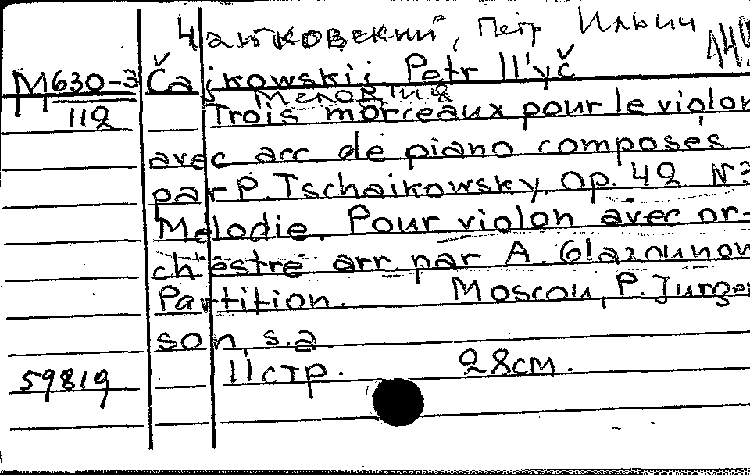 Чайковский, Петр Ильич 144
M630-3 Čajkowskij Petr Il'yč
Мелодия
112 Trois morceaux pour le violon
avec acc de piano composés
par P. Tschaikowsky. Op. 42 N3
Melodie. Pour violon avec or-
chestre arr. par A. Glazounow
Partition. Moscou, P. Jurgen
son, s.a
59819 11 стр. 28см.